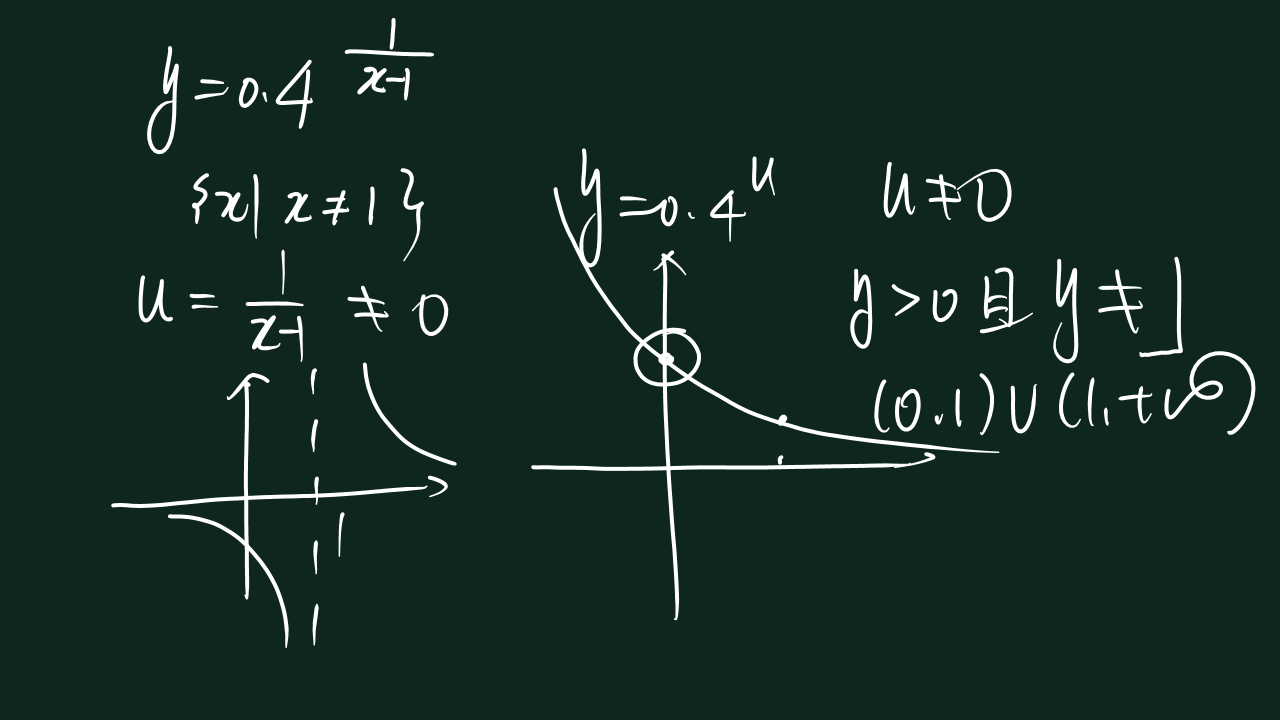 y=0.4^{\frac{1}{x-1}}
{x| x≠1}
u=\frac{1}{x-1}≠0
1
y=0.4^u
u≠0
y>0且y≠1
(0.1)∪(1.+∞)